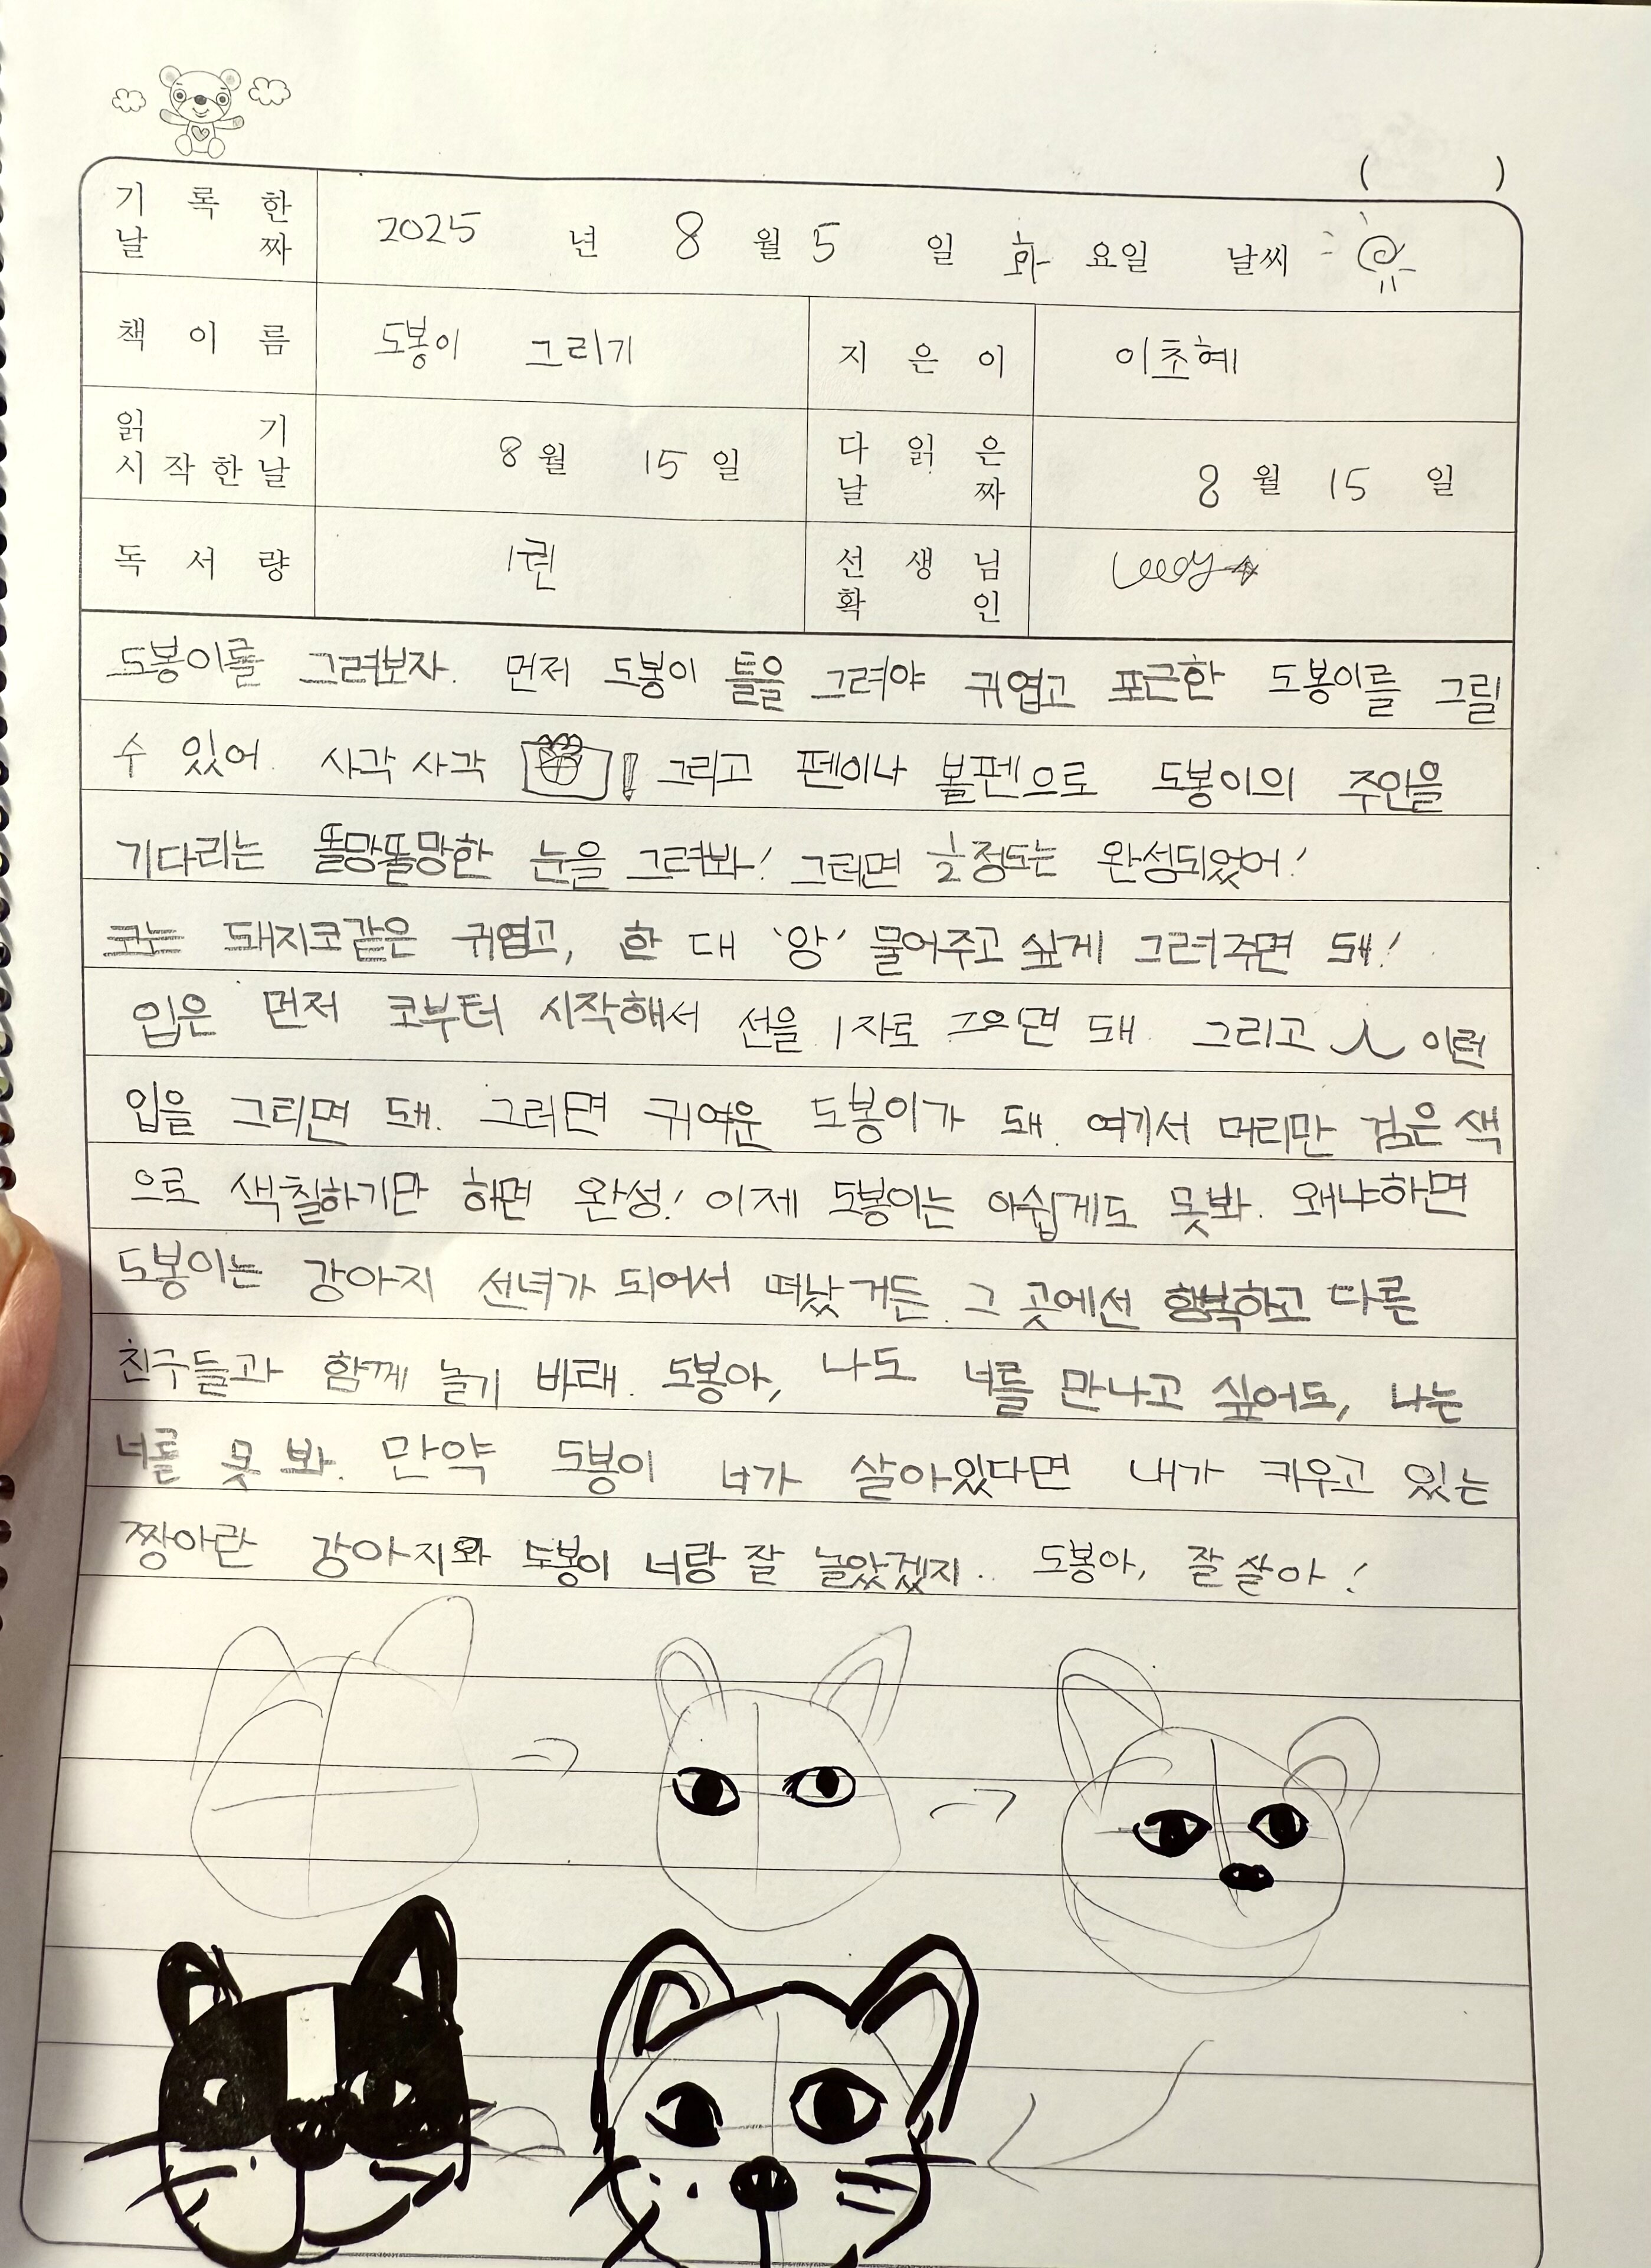 ( )
기록한 날짜 2025 년 8 월 5 일 화 요일 날씨
책이름 도봉이 그리기 지은이 이초혜
읽기 시작한날 8 월 15 일 다 읽은 날짜 8 월 15 일
독서량 1권 선생님 확인
도봉이를 그려보자. 먼저 도봉이 틀을 그려야 귀엽고 포근한 도봉이를 그릴
수 있어. 사각 사각 그리고 펜이나 볼펜으로 도봉이의 주인을
기다리는 똘망똘망한 눈을 그려봐! 그러면 ½정도는 완성되었어!
코는 돼지코같은 귀엽고, 한 대 '앙' 물어주고 싶게 그려주면 돼!
입은 먼저 코부터 시작해서 선을 1자로 그으면 돼. 그리고 이런
입을 그리면 돼. 그러면 귀여운 도봉이가 돼. 여기서 머리만 검은 색
으로 색칠하기만 하면 완성! 이제 도봉이는 아쉽게도 못봐. 왜냐하면
도봉이는 강아지 선녀가 되어서 떠났거든. 그 곳에선 행복하고 다른
친구들과 함께 놀기 바래. 도봉아, 나도 너를 만나고 싶어도, 나는
너를 못 봐. 만약 도봉이 너가 살아있다면 내가 키우고 있는
짱아란 강아지와 도봉이 너랑 잘 놀았겠지.. 도봉아, 잘 살아!